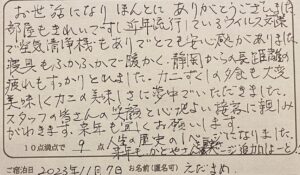 お世話になり ほんとに ありがとうございました
部屋もきれいですし近年流行しているウイルス対策
で空気清浄機もありとても安心感がありました
寝具もふかふかで暖かく、静岡からの長距離
疲れもすっかりとれました。カニずくしの夕食も大変
美味しくカニの美味しさに夢中でいただきました。
スタッフの皆さんの笑顔と心地よい接客に親しみ
がわきます。来年も宜しくお願いします。
10点満点で 9 点 人生の歴史の1ページになりました。
来年もかにやさんで
ご宿泊日 2023年11月7日 お名前(匿名可) えだまめ